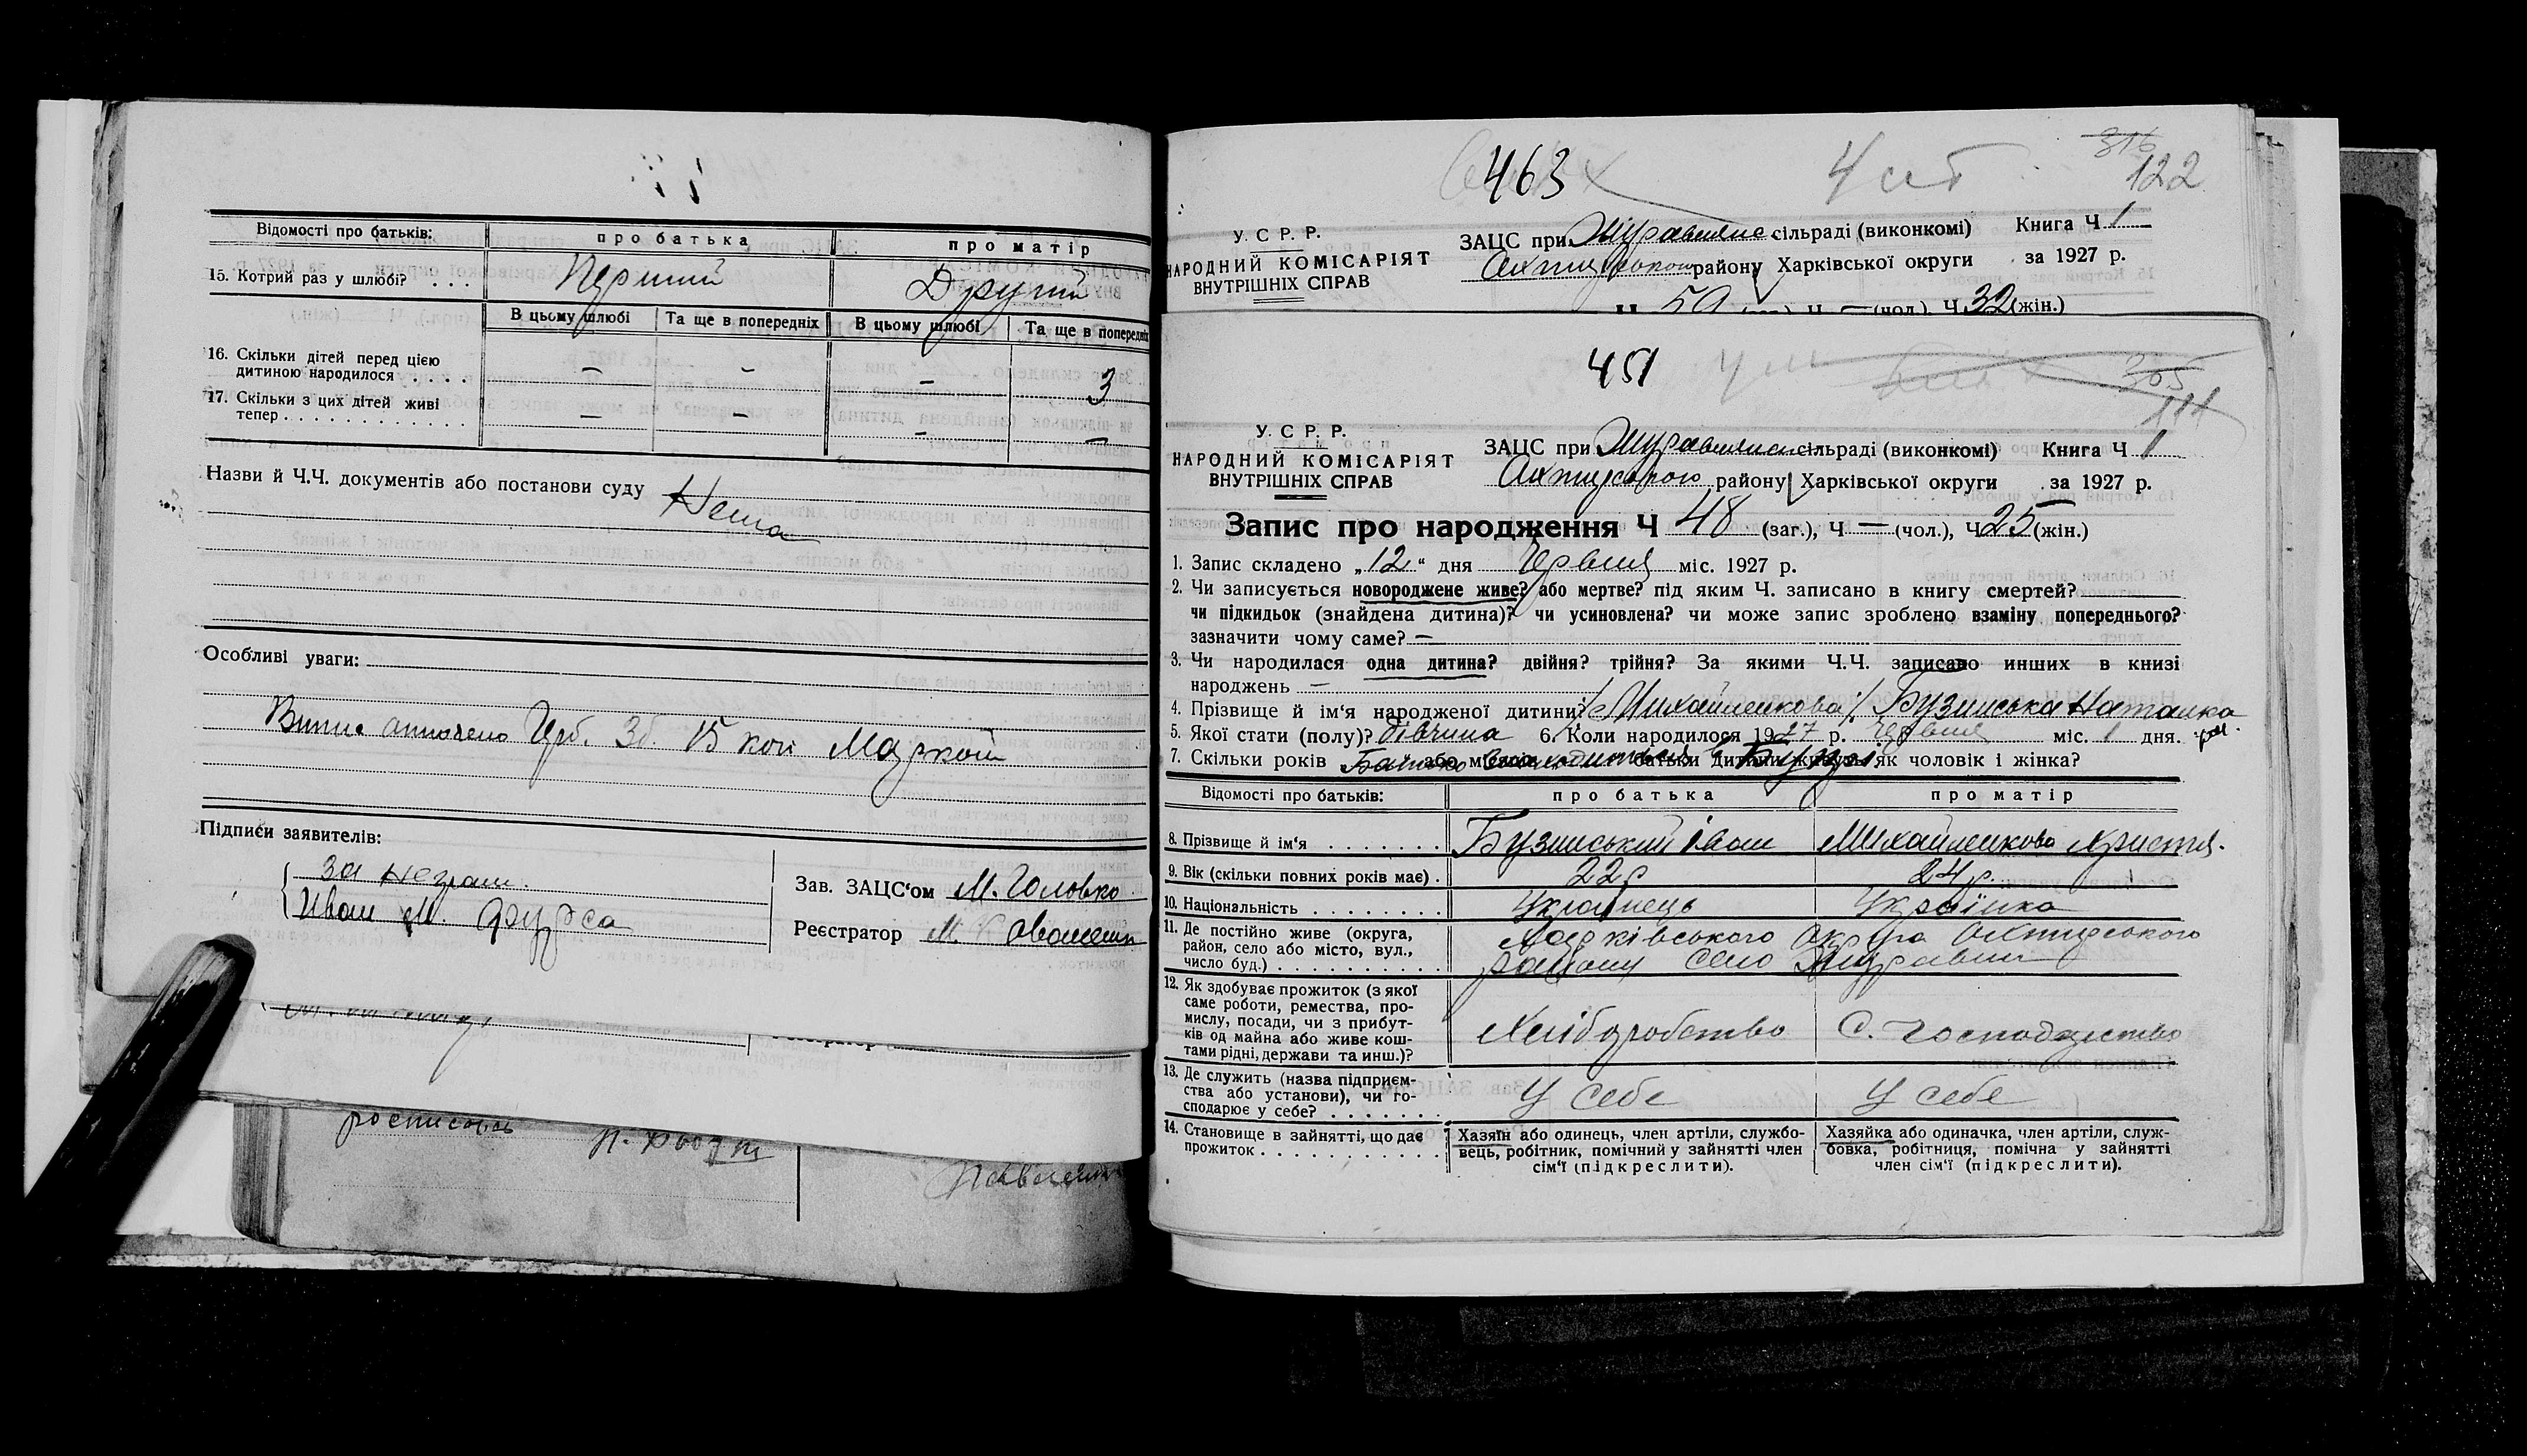 Відомості про батьків: про батька про матір
15. Котрий раз у шлюбі? . . . Перший Другий
В цьому шлюбі Та ще в попередніх В цьому шлюбі Та ще в попередніх
16. Скільки дітей перед цією
дитиною народилося . . . . — — — 3
17. Скільки з цих дітей живі
тепер . . . . . . . . . . . . . — — — —
Назви й Ч.Ч. документів або постанови суду Нема
Особливі уваги:
Гсрб. Зб. 15 коп Маркой
Підписи заявителів:
за неграм.
Иван М. Фурса
Зав. ЗАЦС'ом М. Головко
Реєстратор М.
463
4
316
122
У. С. Р. Р.
НАРОДНИЙ КОМІСАРІЯТ
ВНУТРІШНІХ СПРАВ
ЗАЦС при Журавлянс. сільраді (виконкомі) Книга Ч 1
району Харківської округи за 1927 р.
Ч 59 Ч — (чол.), Ч 32 (жін.)
451
365
111
У. С. Р. Р.
НАРОДНИЙ КОМІСАРІЯТ
ВНУТРІШНІХ СПРАВ
ЗАЦС при Журавлянс. сільраді (виконкомі) Книга Ч 1
району Харківської округи за 1927 р.
Запис про народження Ч 48 (заг.), Ч — (чол.), Ч 25 (жін.)
1. Запис складено „12“ дня Червня міс. 1927 р.
2. Чи записується новороджене живе? або мертве? під яким Ч. записано в книгу смертей?
чи підкидьок (знайдена дитина)? чи усиновлена? чи може запис зроблено взаміну попереднього?
зазначити чому саме? —
3. Чи народилася одна дитина? двійня? трійня? За якими Ч.Ч. записано инших в книзі
народжень —
4. Прізвище й ім'я народженої дитини? /Михайленкова/ Бузинська Наталка
5. Якої стати (полу)? дівчина 6. Коли народилося 1927 р. Червня міс. 1 дня.
7. Скільки років Батько або місяців батьки дитини живуть як чоловік і жінка?
Відомості про батьків: про батька про матір
8. Прізвище й ім'я . . . . . . . Бузинський Іван Михайленкова Христя.
9. Вік (скільки повних років має) . 22 р 24 р.
10. Національність . . . . . . . . Українець Українка
11. Де постійно живе (округа, Харківського округа Охтирського
район, село або місто, вул., району село Журавни
число буд.) . . . . . . . . . .
12. Як здобуває прожиток (з якої
саме роботи, ремества, про-
мислу, посади, чи з прибут- Хліборобство С. Господарство
ків од майна або живе кош-
тами рідні, держави та инш.)?
13. Де служить (назва підприєм-
ства або установи), чи го- У себе У себе
сподарює у себе? . . . . . . .
14. Становище в зайнятті, що дає Хазяїн або одинець, член артіли, службо- Хазяйка або одиначка, член артіли, служ-
прожиток . . . . . . . . . . . . вець, робітник, помічний у зайнятті член бовка, робітниця, помічна у зайнятті
сім'ї (підкреслити). член сім'ї (підкреслити).